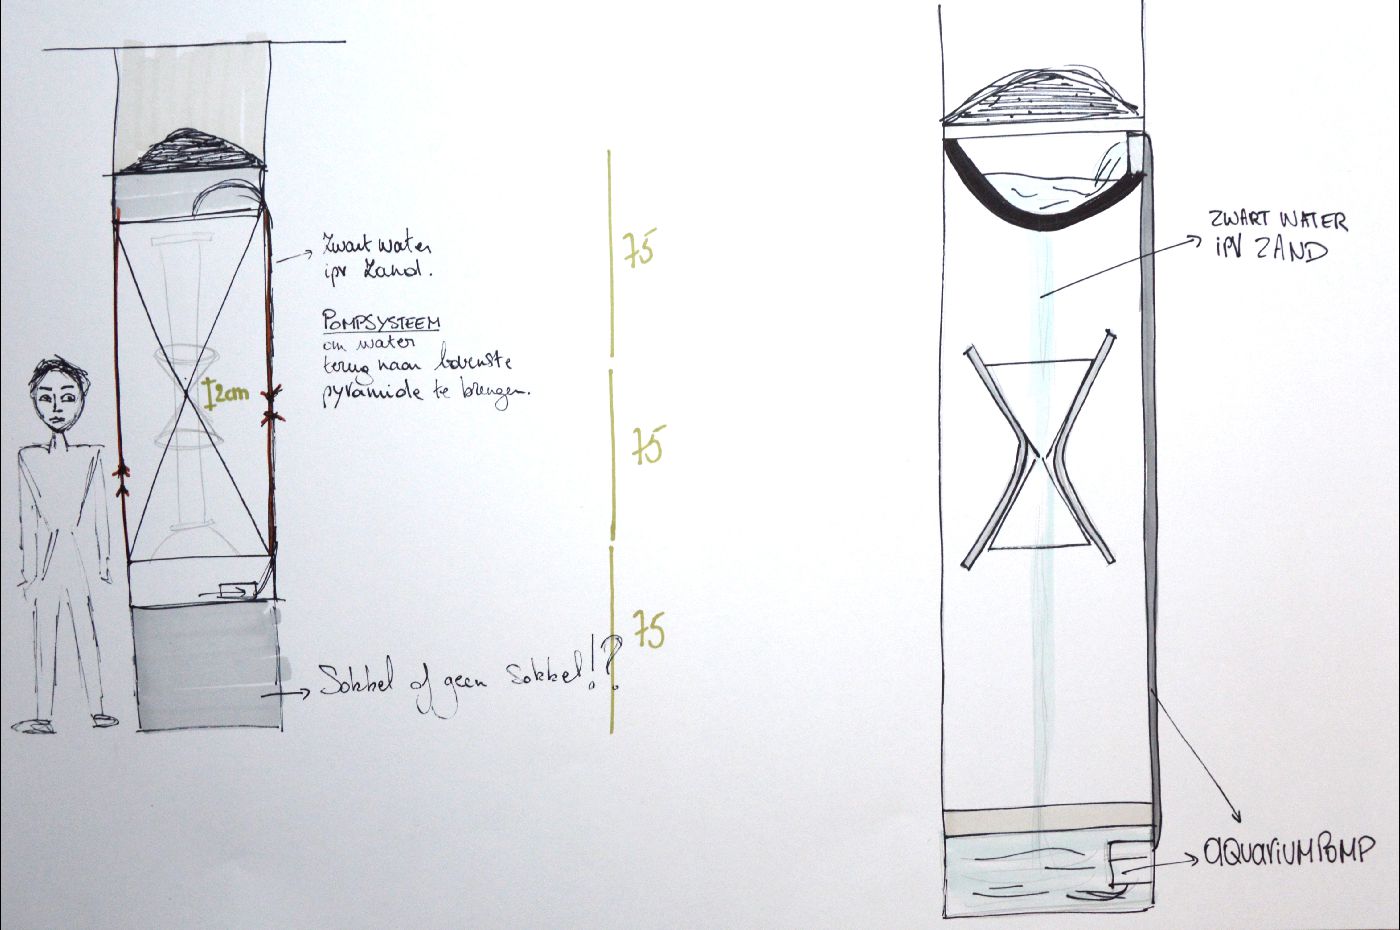 Zwart water
ipv Zand.
POMPSYSTEEM
om water
terug naar bovenste
pyramide te brengen.
2cm
Sokkel of geen sokkel!?
75
75
75
ZWART WATER
iPV ZAND
aQuariuMPOMP